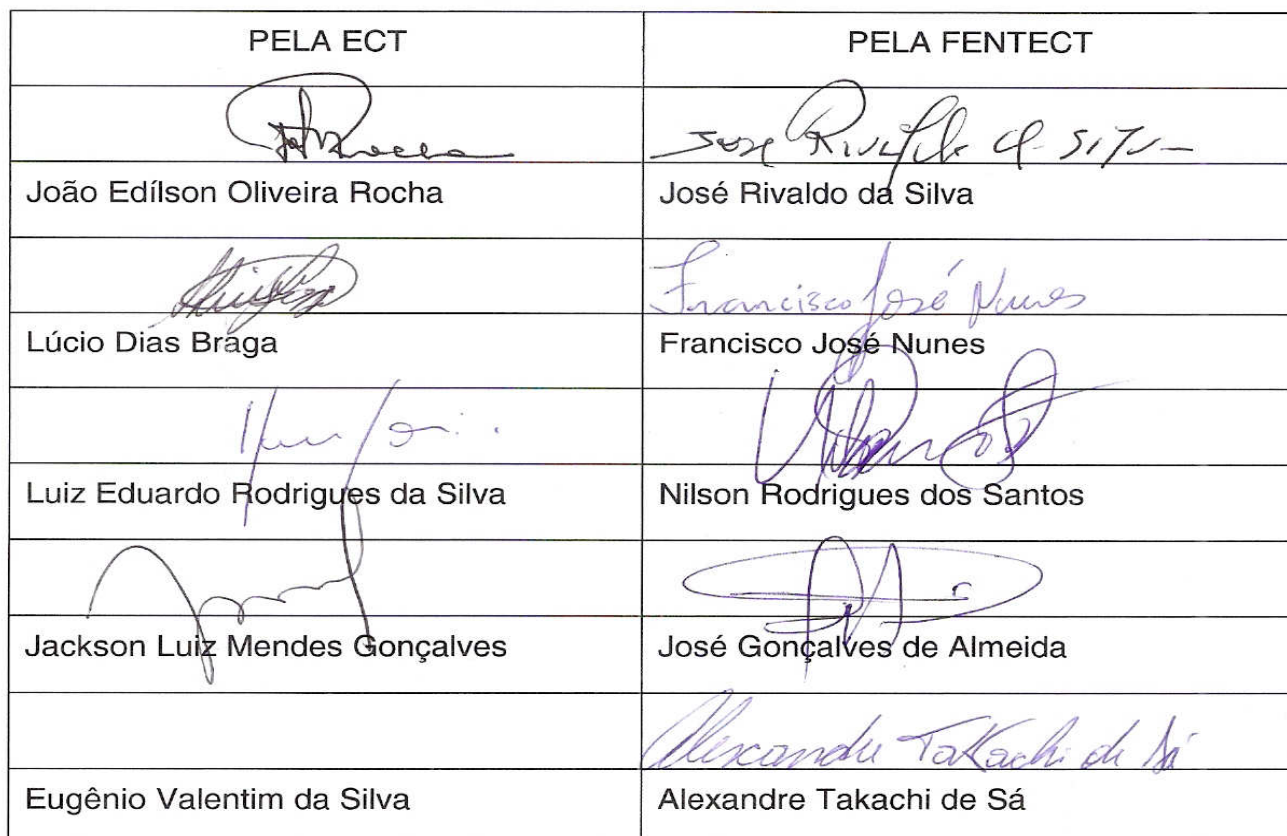 PELA ECT PELA FENTECT
José Rivaldo da Silva
João Edílson Oliveira Rocha José Rivaldo da Silva
Francisco José Nunes
Lúcio Dias Braga Francisco José Nunes
Luiz Eduardo Rodrigues da Silva Nilson Rodrigues dos Santos
Jackson Luiz Mendes Gonçalves José Gonçalves de Almeida
Alexandre Takachi de Sá
Eugênio Valentim da Silva Alexandre Takachi de Sá